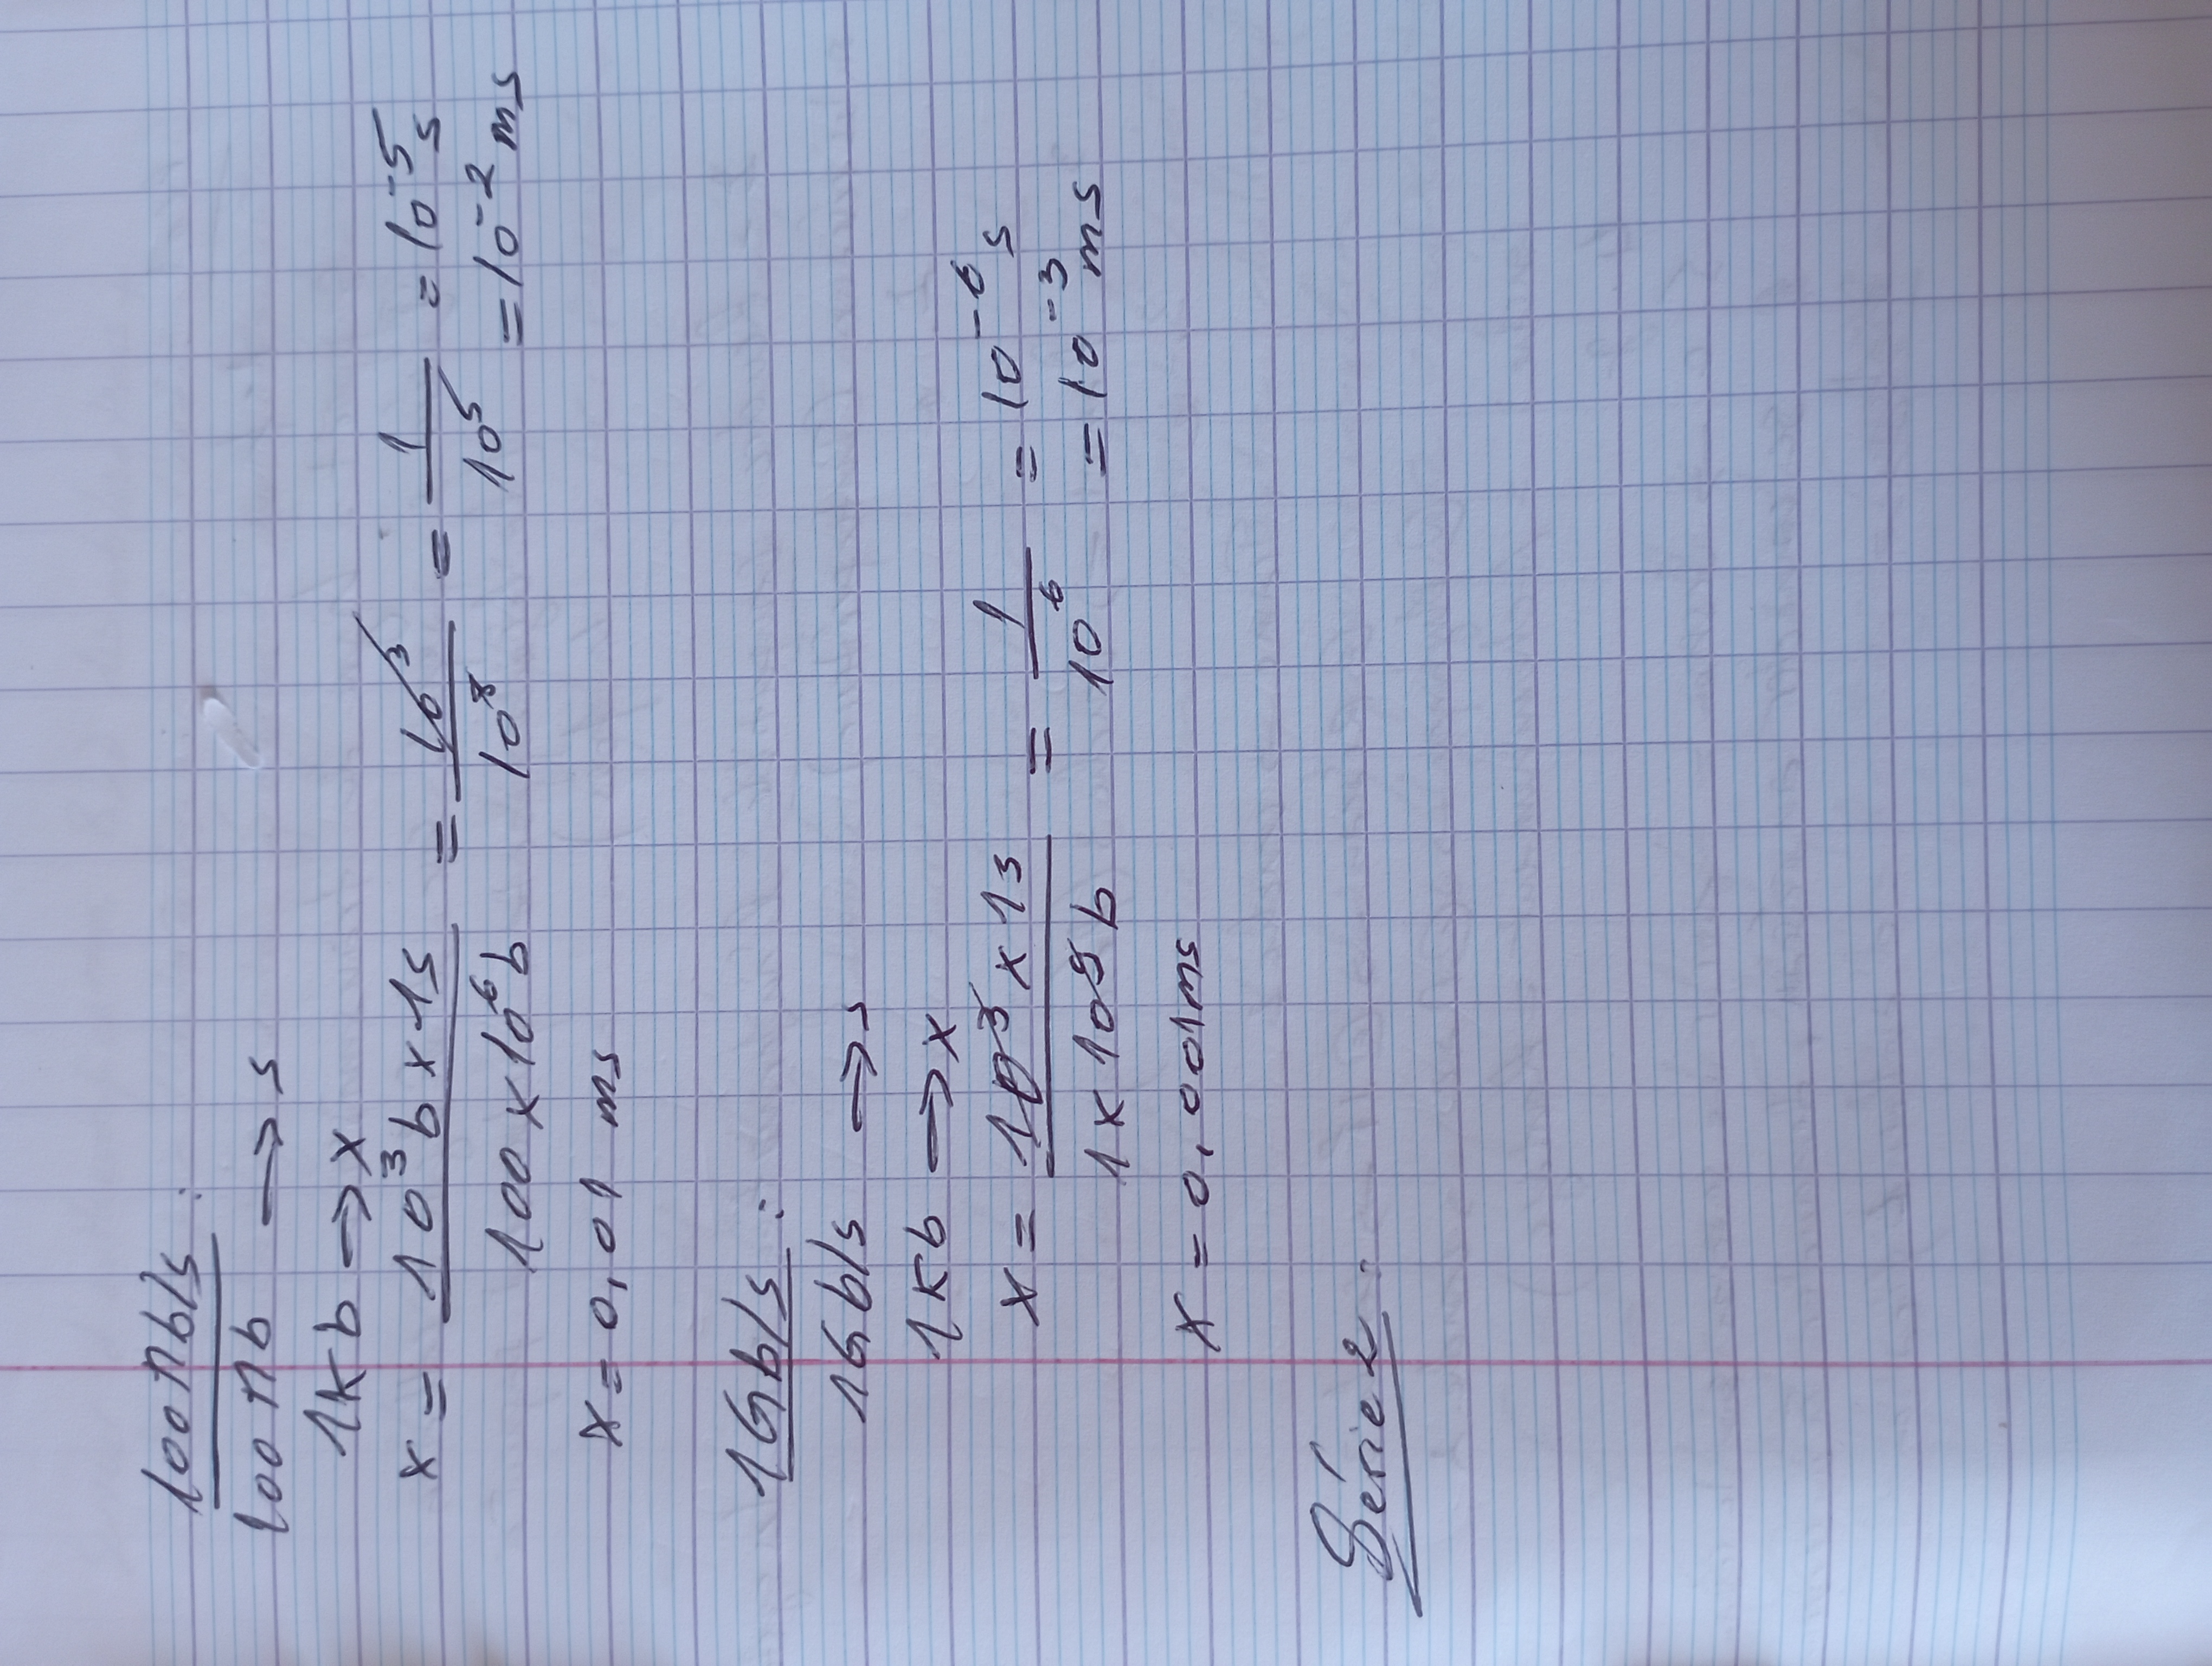 100 Mb/s :
100 Mb → s
1Kb → x
x = 10³b x 1s / 100 x 10⁶b = 10³ / 10⁸ = 1 / 10⁵ = 10⁻⁵ s
= 10⁻² ms
x = 0,01 ms
1Gb/s :
1Gb/s → s
1Kb → x
x = 10³ x 1s / 1x10⁹ b = 1 / 10⁶ = 10⁻⁶ s
= 10⁻³ ms
x = 0,001ms
Série 2 :